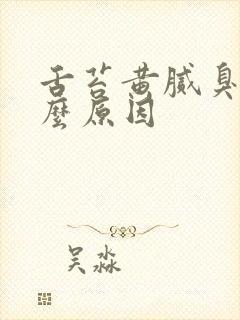 舌苔黄腻臭
麽原因
吴淼